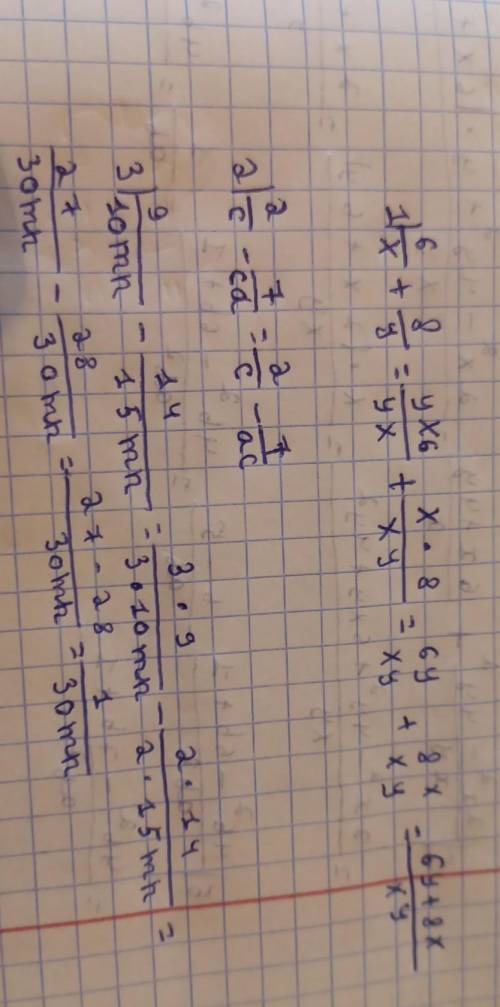 1) 6/x + 8/y = yx6/yx + x·8/xy = 6y/xy + 8x/xy = 6y+8x/xy
2) 2/c - 7/cd = 2/c - 7/ac
3) 9/10mn - 14/15mn = 3·9/3·10mn - 2·14/2·15mn =
27/30mn - 28/30mn = 27-28/30mn = 1/30mn